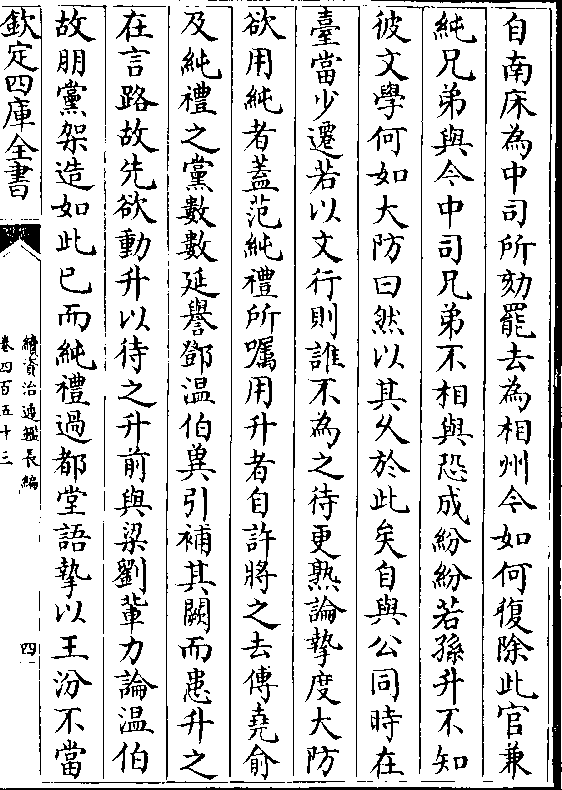 自南床為中司所劾罷去為相州今如何復除此官兼
純兄弟與今中司兄弟不相與恐成紛紛若孫升不知
彼文學何如大防曰然以其久於此矣自與公同時在
臺當少遷若以文行則誰不為之待更熟論摯度大防
欲用純者蓋范純禮所嘱用升者自許將之去傅堯俞
及純禮之黨數數延譽鄧温伯兾引補其闕而患升之
在言路故先欲動升以待之升前與梁劉輩力論温伯
故朋黨架造如此已而純禮過都堂語摯以王汾不當
欽定四庫全書
續資治通鑑長編
卷四百五十三
四